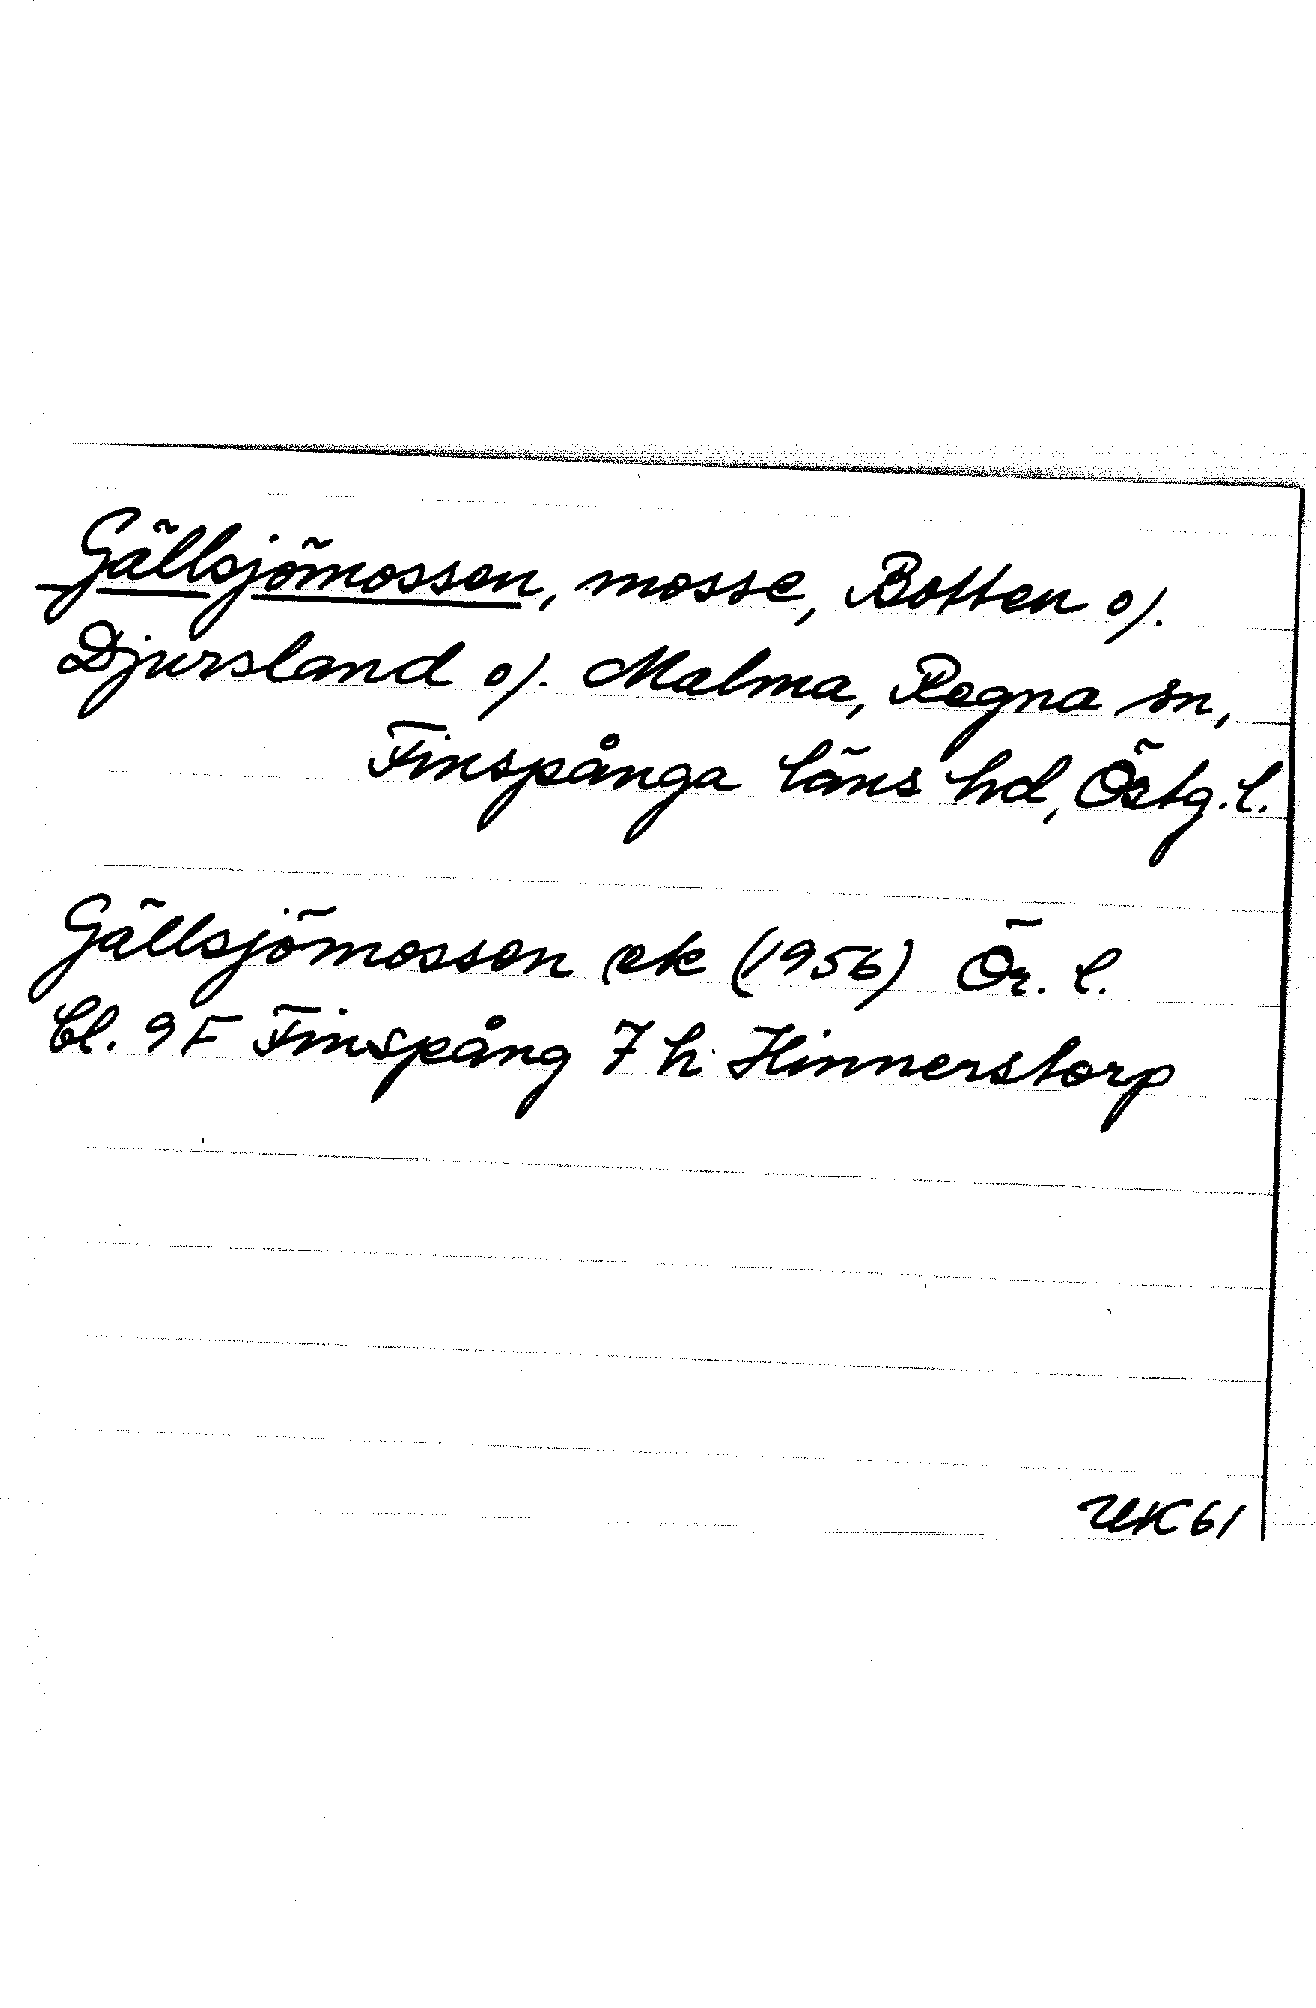 Gällsjömossen, mosse, Botten o/.
Djursland o/. Malma, Regna sn,
Finspånga läns hd, Östg. l.
Gällsjömossen (ek (1956) Ör. l.
bl. 9F Finspång 7 h Hinnerstorp
UK 61